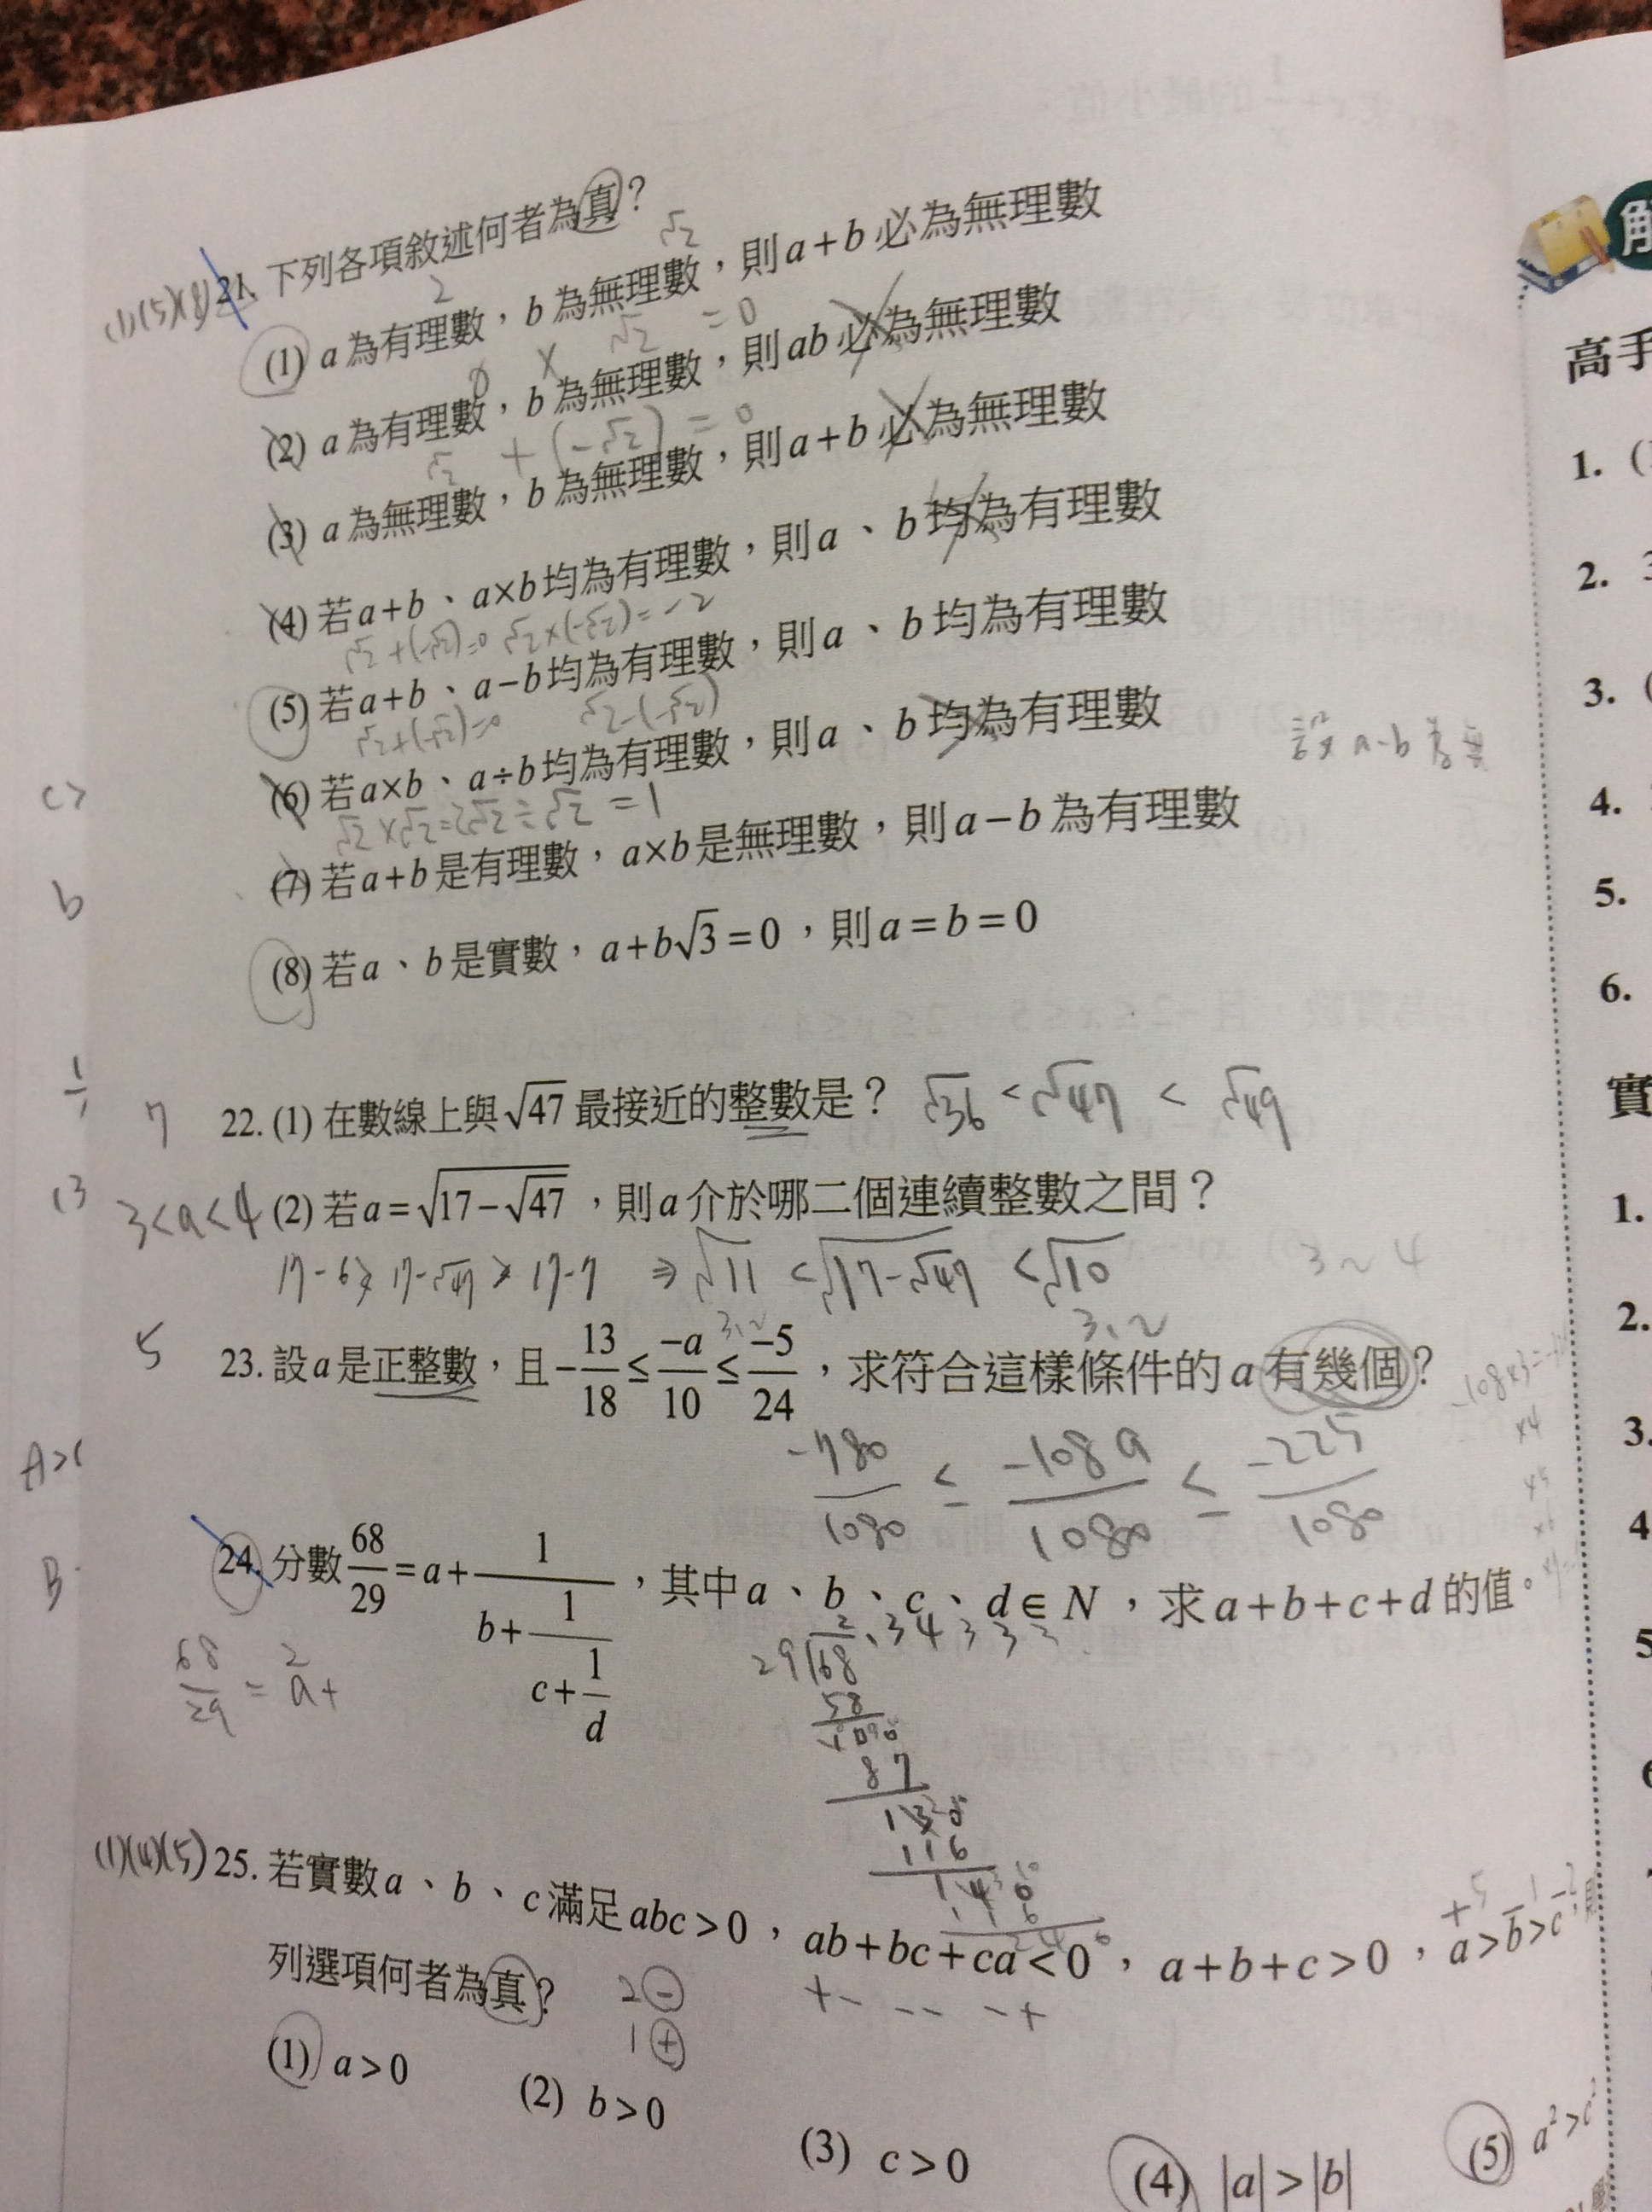 (1)(5)(8) 21. 下列各項敘述何者為真？
(1) a為有理數，b為無理數，則a+b必為無理數
2 √2
(2) a為有理數，b為無理數，則ab必為無理數
0 × √2 = 0
(3) a為無理數，b為無理數，則a+b必為無理數
√2 + (-√2) = 0
(4) 若a+b、a×b均為有理數，則a、b均為有理數
√2+(-√2)=0 √2×(-√2)=-2
(5) 若a+b、a−b均為有理數，則a、b均為有理數
√2+(-√2)=0 √2-(-√2)
(6) 若a×b、a÷b均為有理數，則a、b均為有理數
設 a-b 為無
√2×√2=2 √2÷√2=1
(7) 若a+b是有理數，a×b是無理數，則a−b為有理數
(8) 若a、b是實數，a+b√3=0，則a=b=0
7 22. (1) 在數線上與√47最接近的整數是？ √36 < √47 < √49
3<a<4 (2) 若a=√(17−√47)，則a介於哪二個連續整數之間？
17-6 > 17-√47 > 17-7 ⇒ √11 < √(17-√47) < √10 3~4
3.~ 3.~
5 23. 設a是正整數，且−13/18 ≤ −a/10 ≤ −5/24，求符合這樣條件的a有幾個？
-780/1080 ≤ -108a/1080 ≤ -225/1080
24. 分數68/29=a+1/(b+1/(c+1/d))，其中a、b、c、d∈N，求a+b+c+d的值。
68/29 = a+
2
2.34333
29 68
58
87
116
(1)(4)(5) 25. 若實數a、b、c滿足abc>0，ab+bc+ca<0，a+b+c>0，a>b>c，
+5 -1 -2
+- -- -+
列選項何者為真？
2⊖
1⊕
(1) a>0 (2) b>0 (3) c>0 (4) |a|>|b| (5) a²>c²
c>
b
A>
B
解
高手
1. (
2. 3
3. (
4.
5.
6.
實
1.
2.
3.
4
5
6